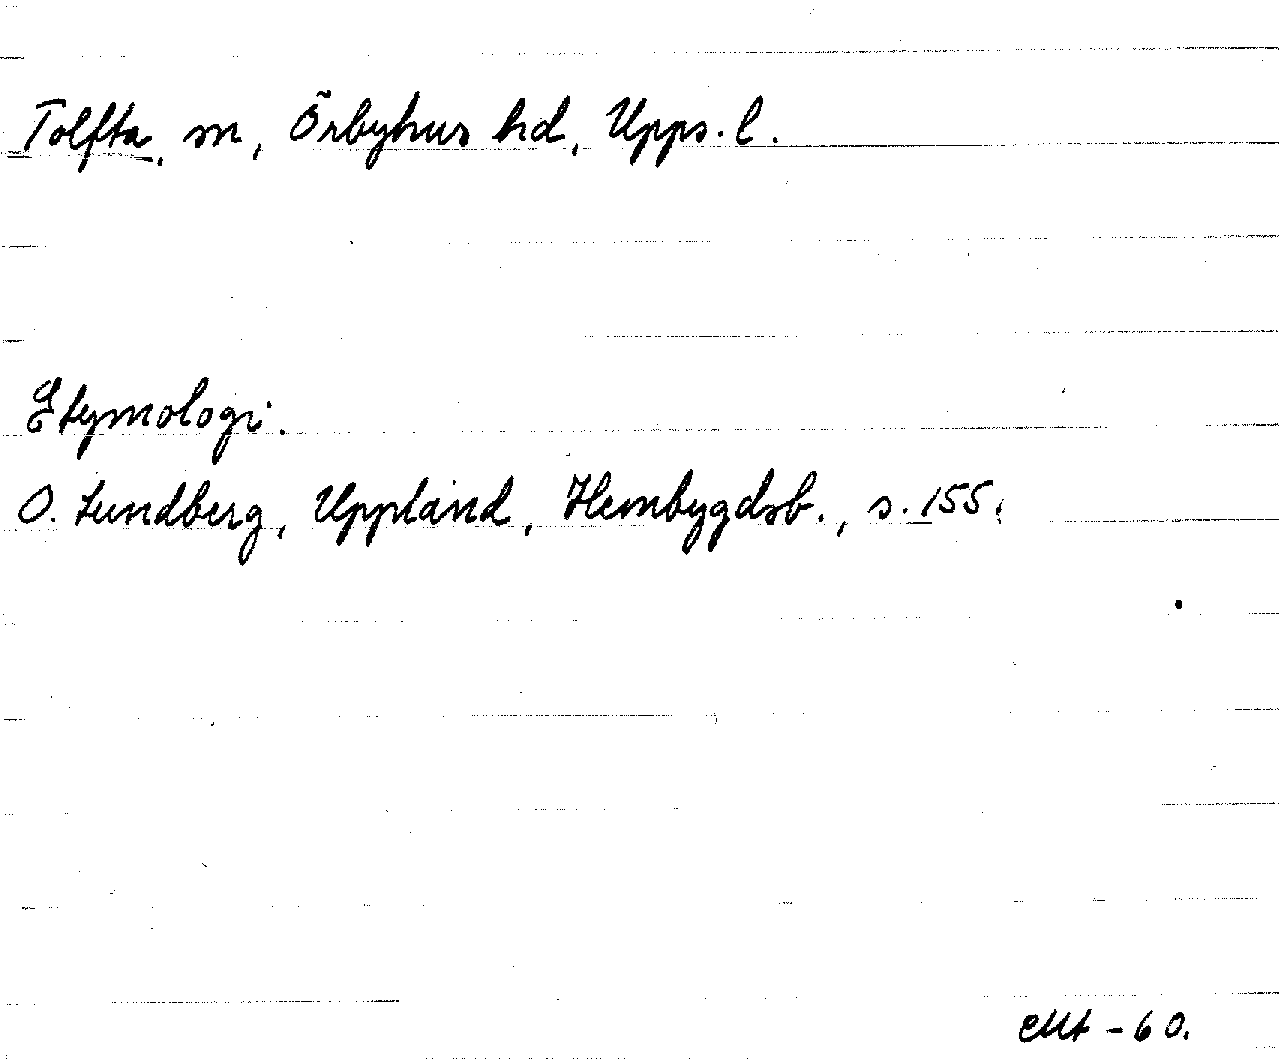 Tolfta, sn, Örbyhus hd, Upps. l.
Etymologi.
O. Lundberg, Uppland, Hembygdsb., s. 155.
-60.